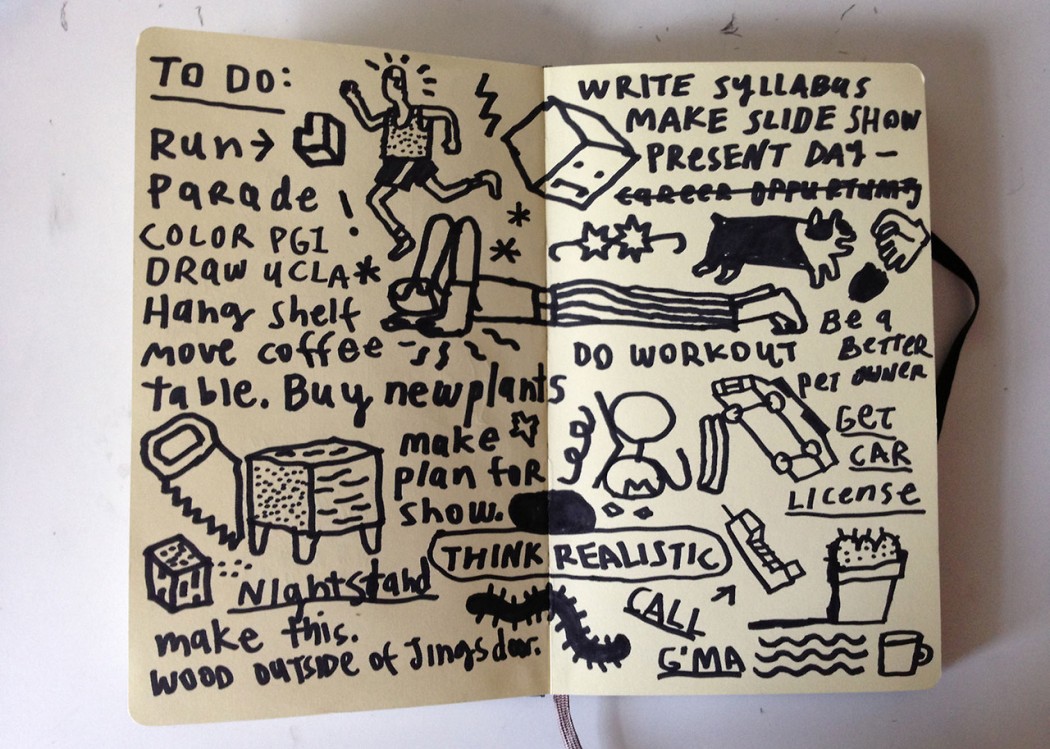 TO DO:
Run→
Parade!
COLOR PG1
DRAW UCLA*
Hang shelf
move coffee
table. Buy new plants
make
plan for
show.
THINK REALISTIC
Nightstand
make this.
WOOD OUTSIDE OF Jings door.
WRITE SYLLABUS
MAKE SLIDE SHOW
PRESENT DAY-
CAREER OPPURTUNITY
Be a
BETTER
PET OWNER
DO WORKOUT
GET
CAR
LICENSE
CALL
G'MA